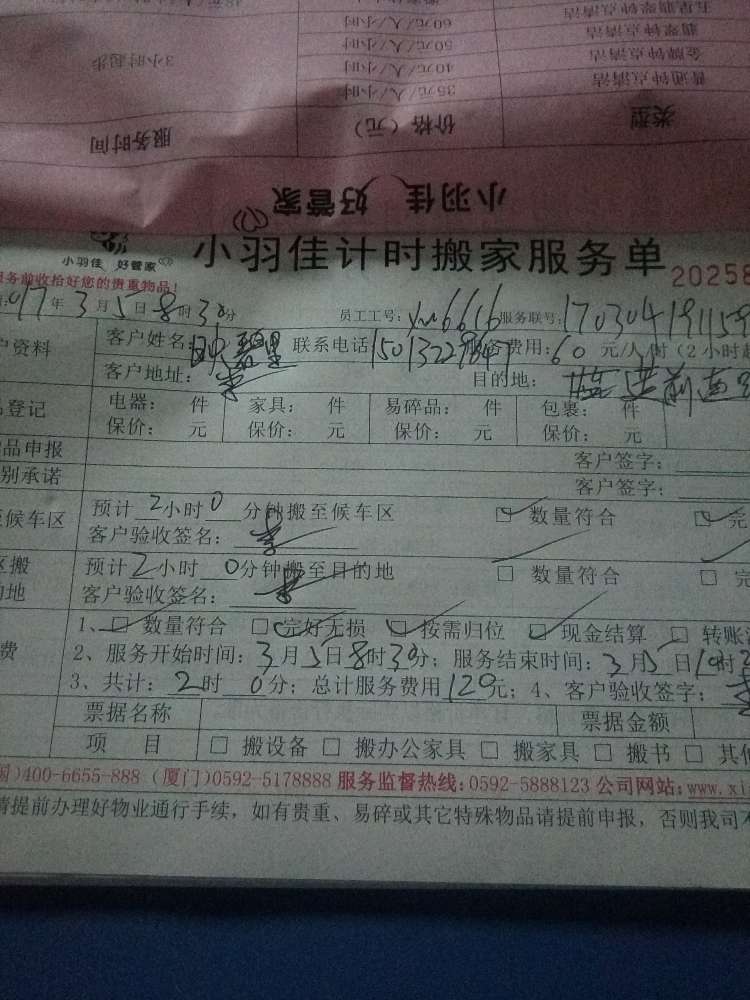 五星翡翠钟点清洁 60元/人/小时
翡翠钟点清洁 50元/人/小时
金牌钟点清洁 40元/人/小时 3小时起步
普通钟点清洁 35元/人/小时
类型 价格(元) 服务时间
小羽佳 好管家
小羽佳 好管家
小羽佳计时搬家服务单 20258
服务前收拾好您的贵重物品!
017年3月5日8时30分 员工工号:ym6616 服务联号:170304191159
户资料 客户姓名: 联系电话 服务费用:60元/人/时(2小时起
客户地址: 目的地:
登记 电器: 件 家具: 件 易碎品: 件 包裹: 件
保价: 元 保价: 元 保价: 元 保价: 元
品申报 客户签字:
别承诺 客户签字:
至候车区 预计2小时0分钟搬至候车区 □ 数量符合 □ 完
客户验收签名:
区搬 预计2小时0分钟搬至目的地 □ 数量符合 □ 完
的地 客户验收签名:
1、□ 数量符合 □ 完好无损 □ 按需归位 □ 现金结算 □ 转账
费 2、服务开始时间:3月5日8时30分;服务结束时间:3月5日10时
3、共计:2时0分;总计服务费用120元;4、客户验收签字:
票据名称 票据金额
项 目 □ 搬设备 □ 搬办公家具 □ 搬家具 □ 搬书 □ 其他
国)400-6655-888 (厦门)0592-5178888 服务监督热线:0592-5888123 公司网站:www.xi
请提前办理好物业通行手续,如有贵重、易碎或其它特殊物品请提前申报,否则我司不